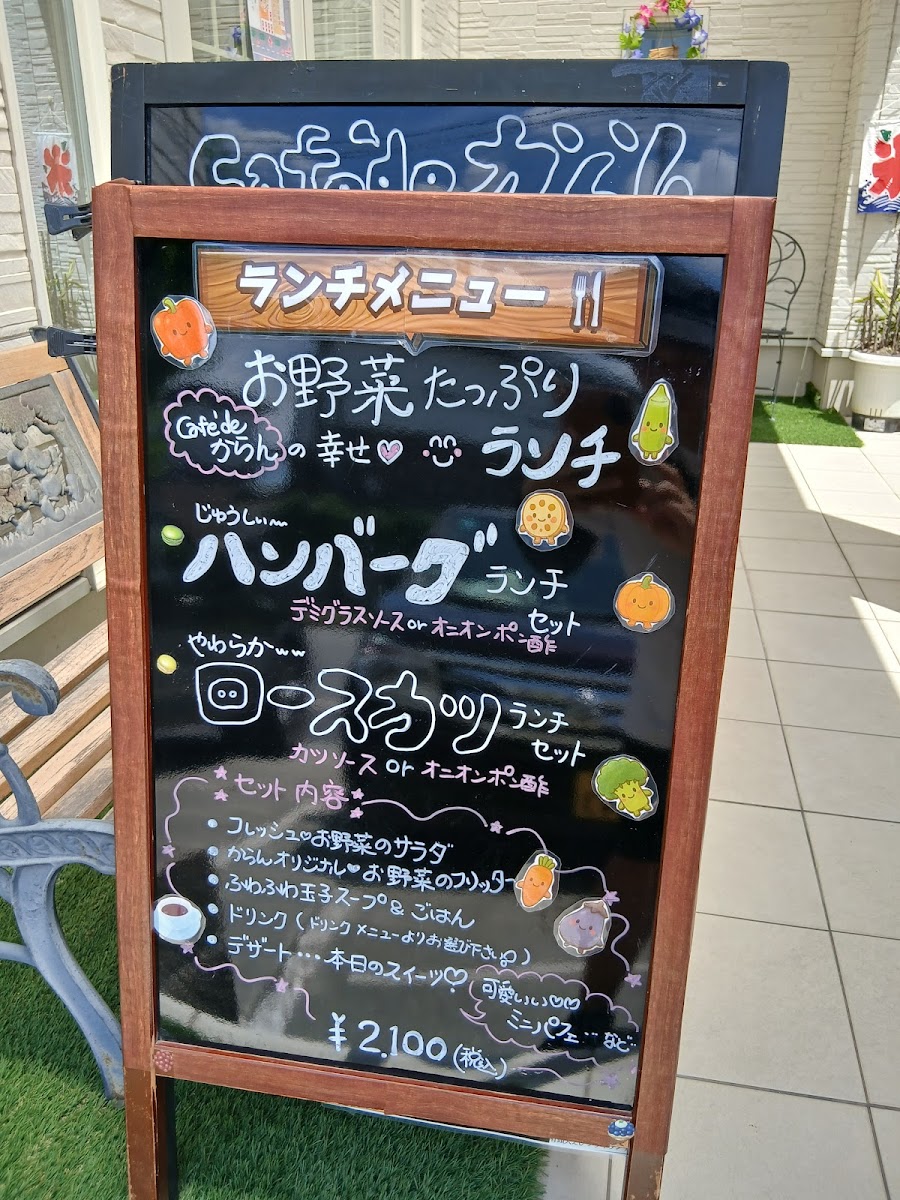 Cafe'de からん
ランチメニュー
お野菜たっぷり
Cafe'de
からん
の幸せ♡
ランチ
じゅうしぃ〜
ハンバーグ ランチ
セット
デミグラスソース or オニオンポン酢
やわらかww
ロースカツ ランチ
セット
カツソース or オニオンポン酢
セット内容
・フレッシュ♡お野菜のサラダ
・からんオリジナル♡お野菜のフリッター
・ふわふわ玉子スープ & ごはん
・ドリンク(ドリンクメニューよりお選び下さい)
・デザート…本日のスイーツ♡
可愛いい♡♡
ミニパフェ…など…
¥2,100(税込)